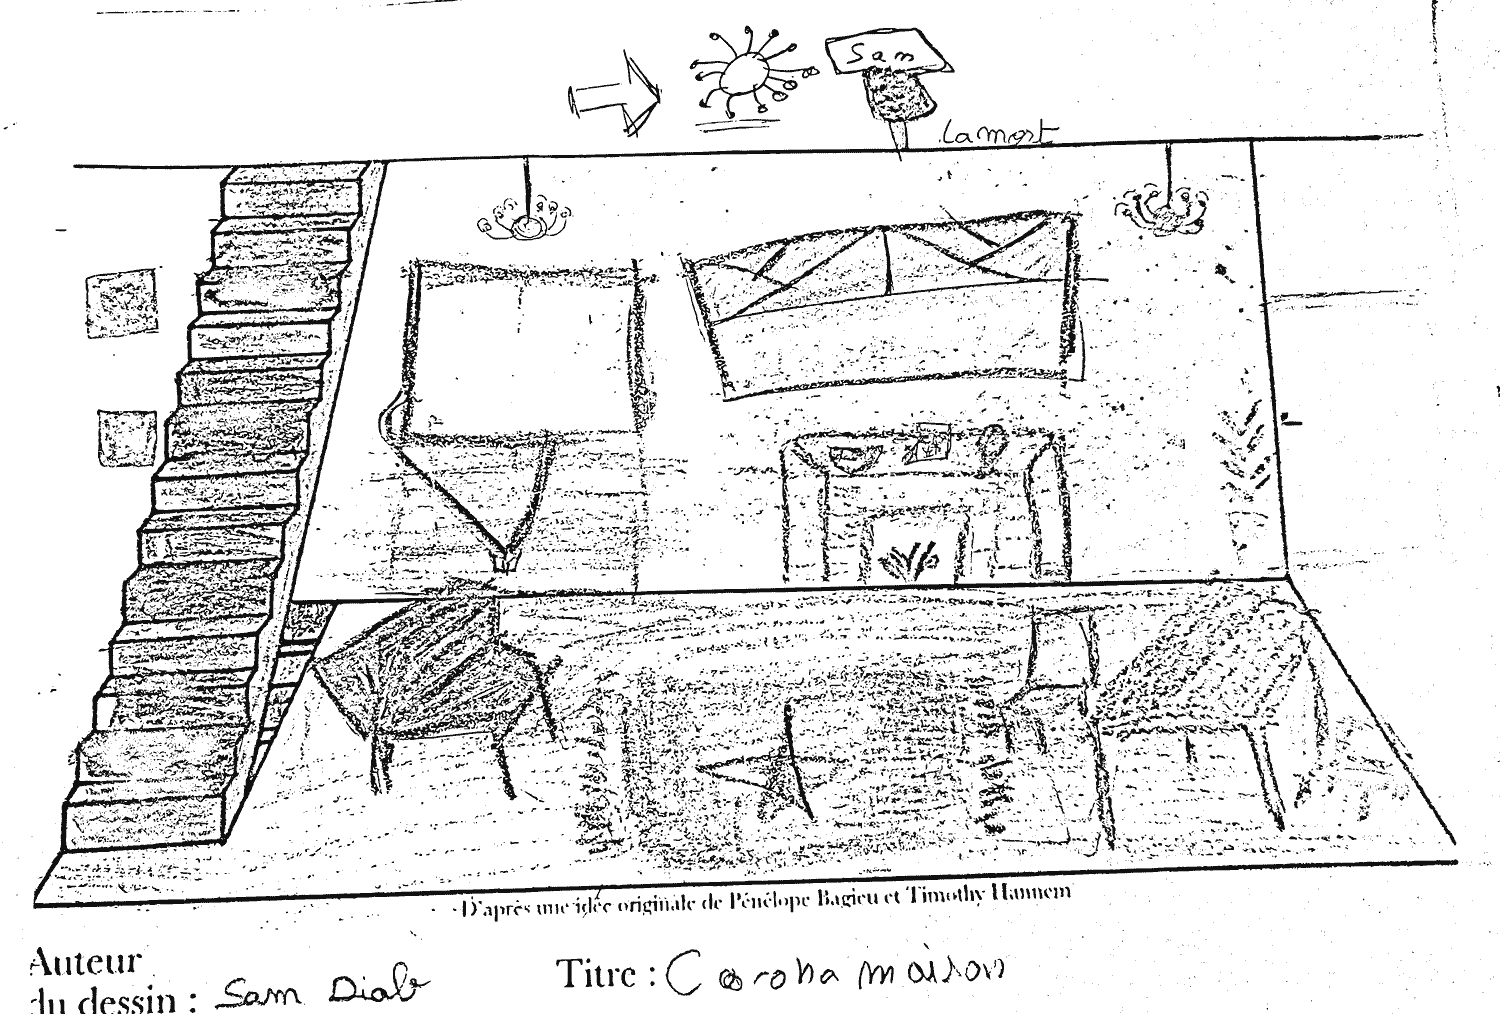 Sam
la mort
D'après une idée originale de Pénélope Bagieu et Timothy Hannem
Auteur
du dessin : Sam Diab
Titre : Corona maison